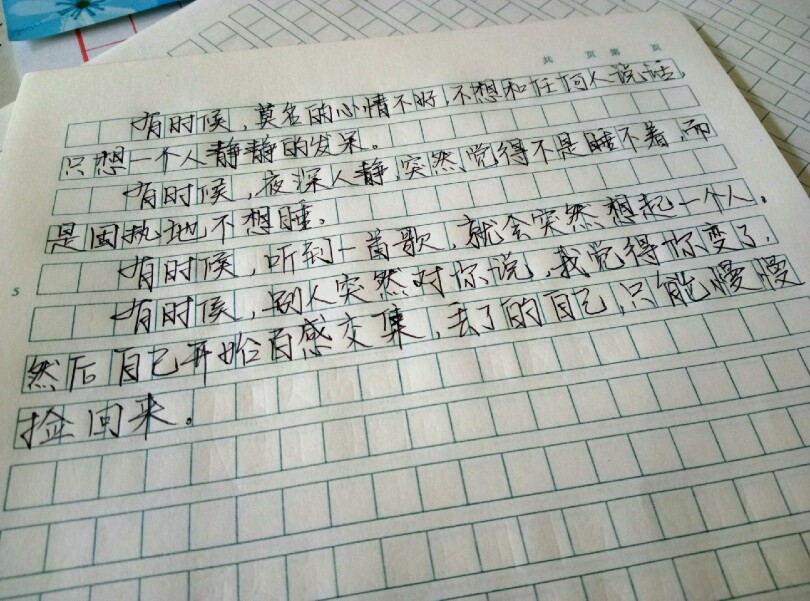 共 页 第 页
有时候，莫名的心情不好，不想和任何人说话，
只想一个人静静的发呆。
有时候，夜深人静，突然觉得不是睡不着，而
是固执地不想睡。
有时候，听到一首歌，就会突然想起一个人。
有时候，别人突然对你说，我觉得你变了，
然后自己开始百感交集，丢了的自己，只能慢慢
捡回来。
5